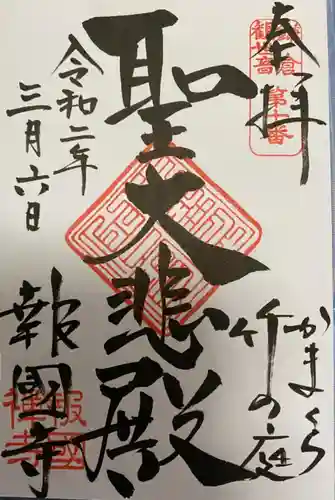 奉拝
鎌倉
観世音
第十番
かまくら
竹の庭
聖大悲殿
令和二年
三月六日
報國寺